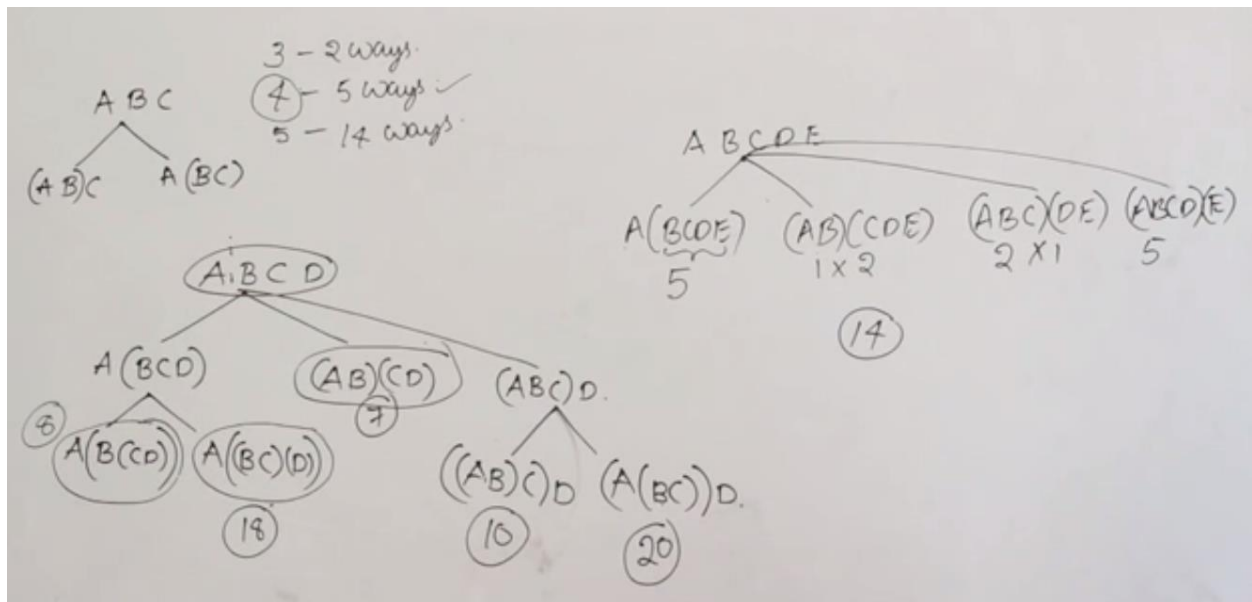 3 - 2 ways.
4 - 5 ways ✓
5 - 14 ways.
A B C
(AB)C A(BC)
A B C D
A(BCD) (AB)(CD) (ABC)D.
7
8
A(B(CD)) A((BC)(D)) ((AB)C)D (A(BC))D.
18 10 20
A B C D E
A(BCDE) (AB)(CDE) (ABC)(DE) (ABCD)(E)
5 1 x 2 2 x 1 5
14